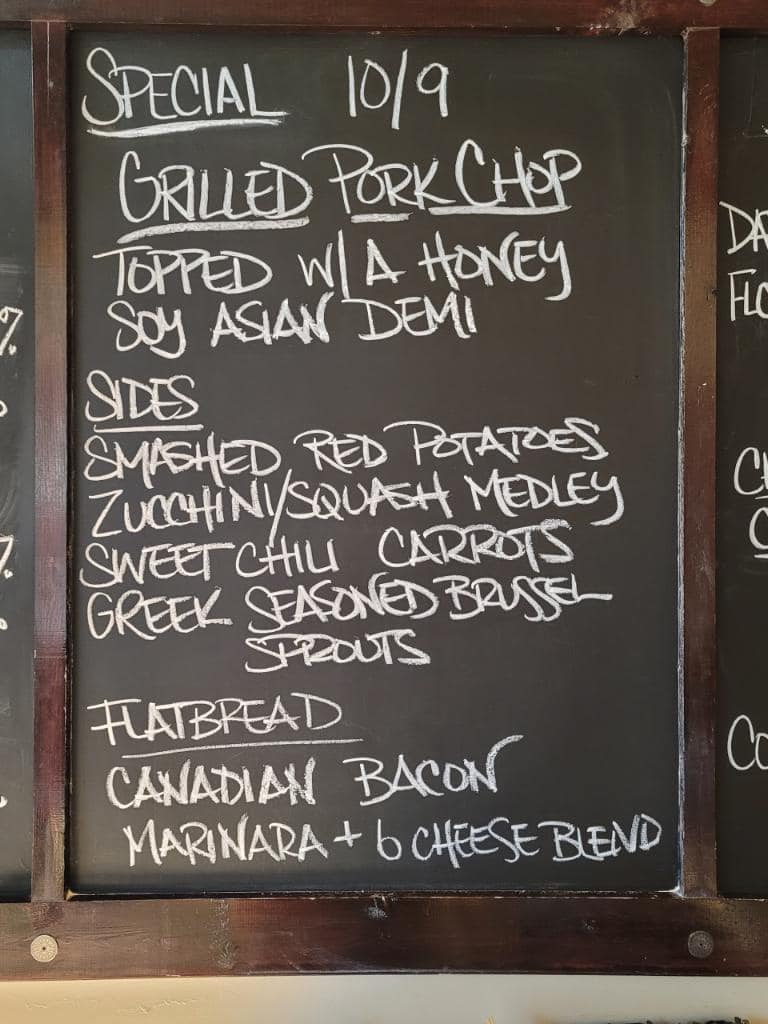 SPECIAL 10/9
GRILLED PORK CHOP
TOPPED W/ A HONEY
SOY ASIAN DEMI
SIDES
SMASHED RED POTATOES
ZUCCHINI/SQUASH MEDLEY
SWEET CHILI CARROTS
GREEK SEASONED BRUSSEL
SPROUTS
FLATBREAD
CANADIAN BACON
MARINARA + 6 CHEESE BLEND